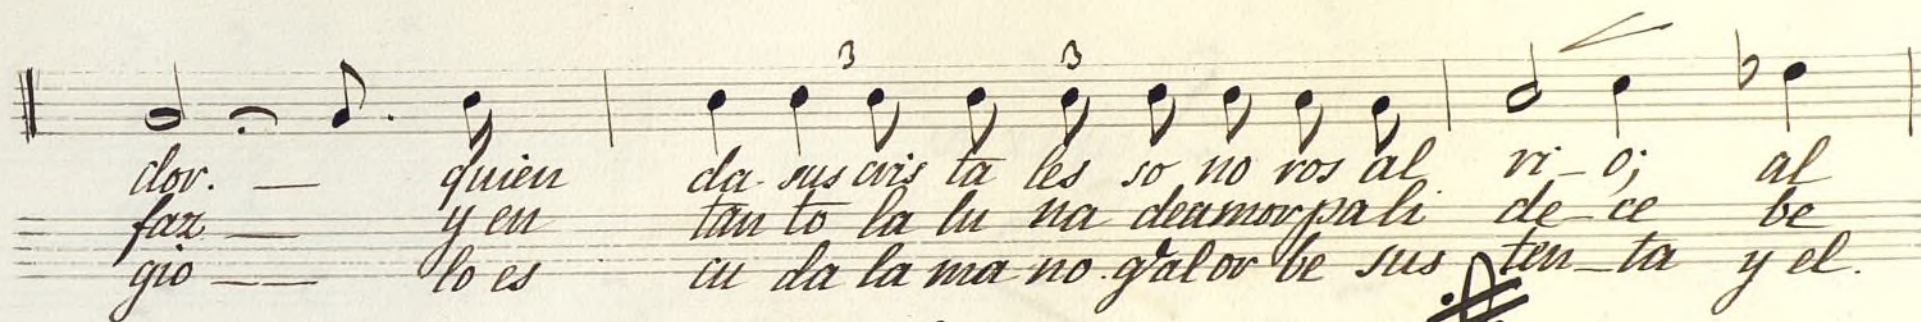 3 3
dor. — quien da sus cris ta les so no ros al ri-o; al
faz — y en tan to la lu na deamorpali de-ce be
gio — lo es cu da la ma no q'al or be sus ten-ta y el.